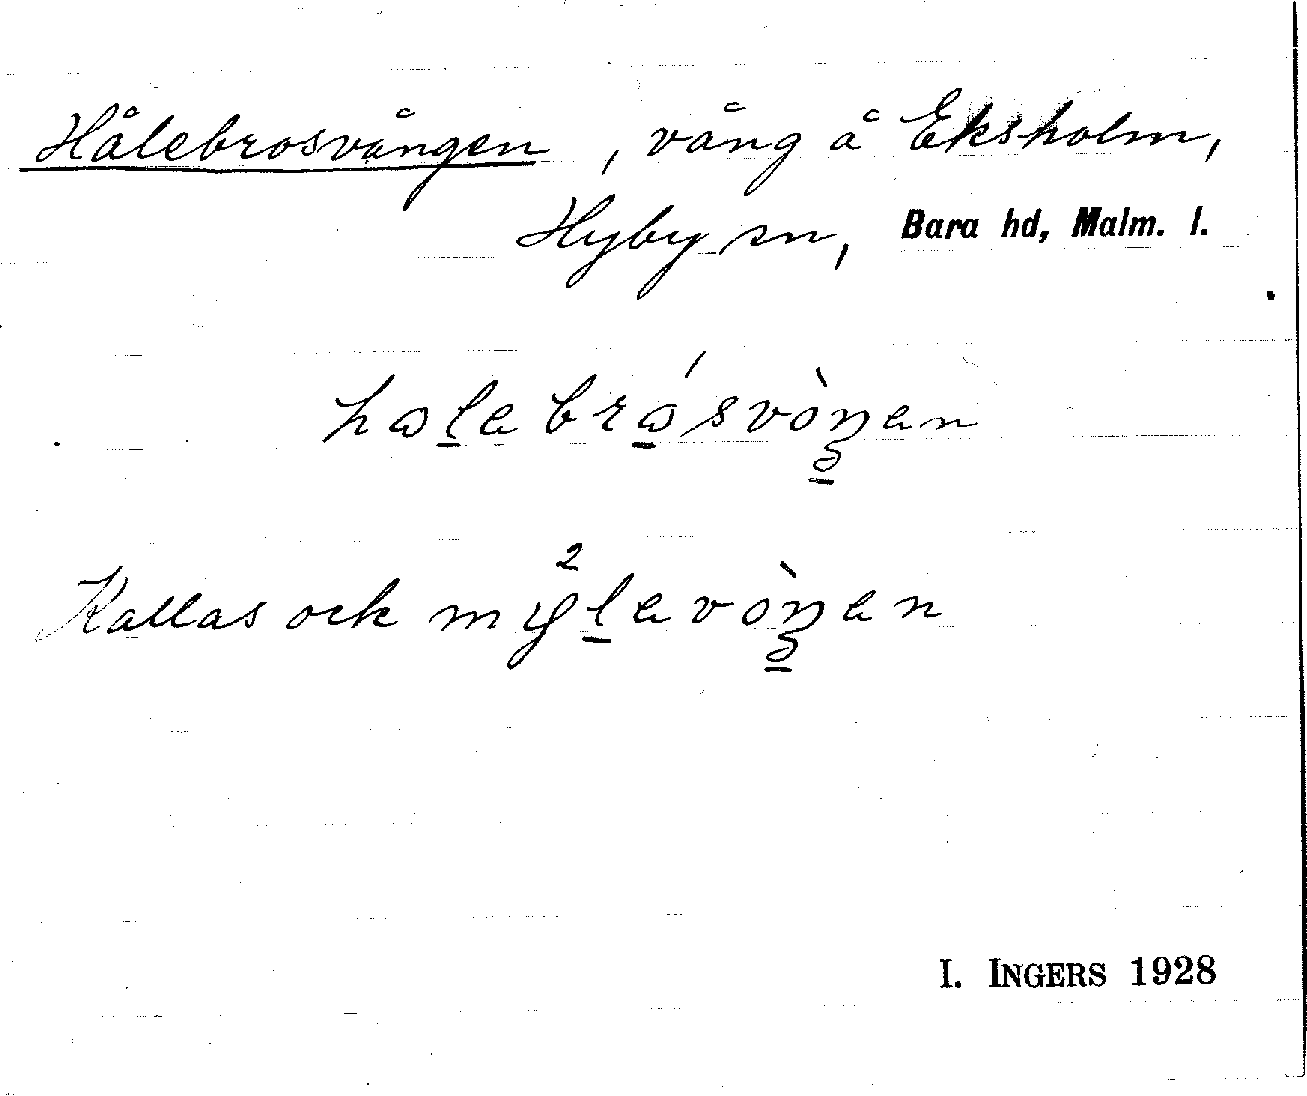 Hålebrosvången, vång å Eksholm,
Hyby sn, Bara hd, Malm. l.
halebrásvòŋen
Kallas ock mÿ²levòŋen
I. INGERS 1928